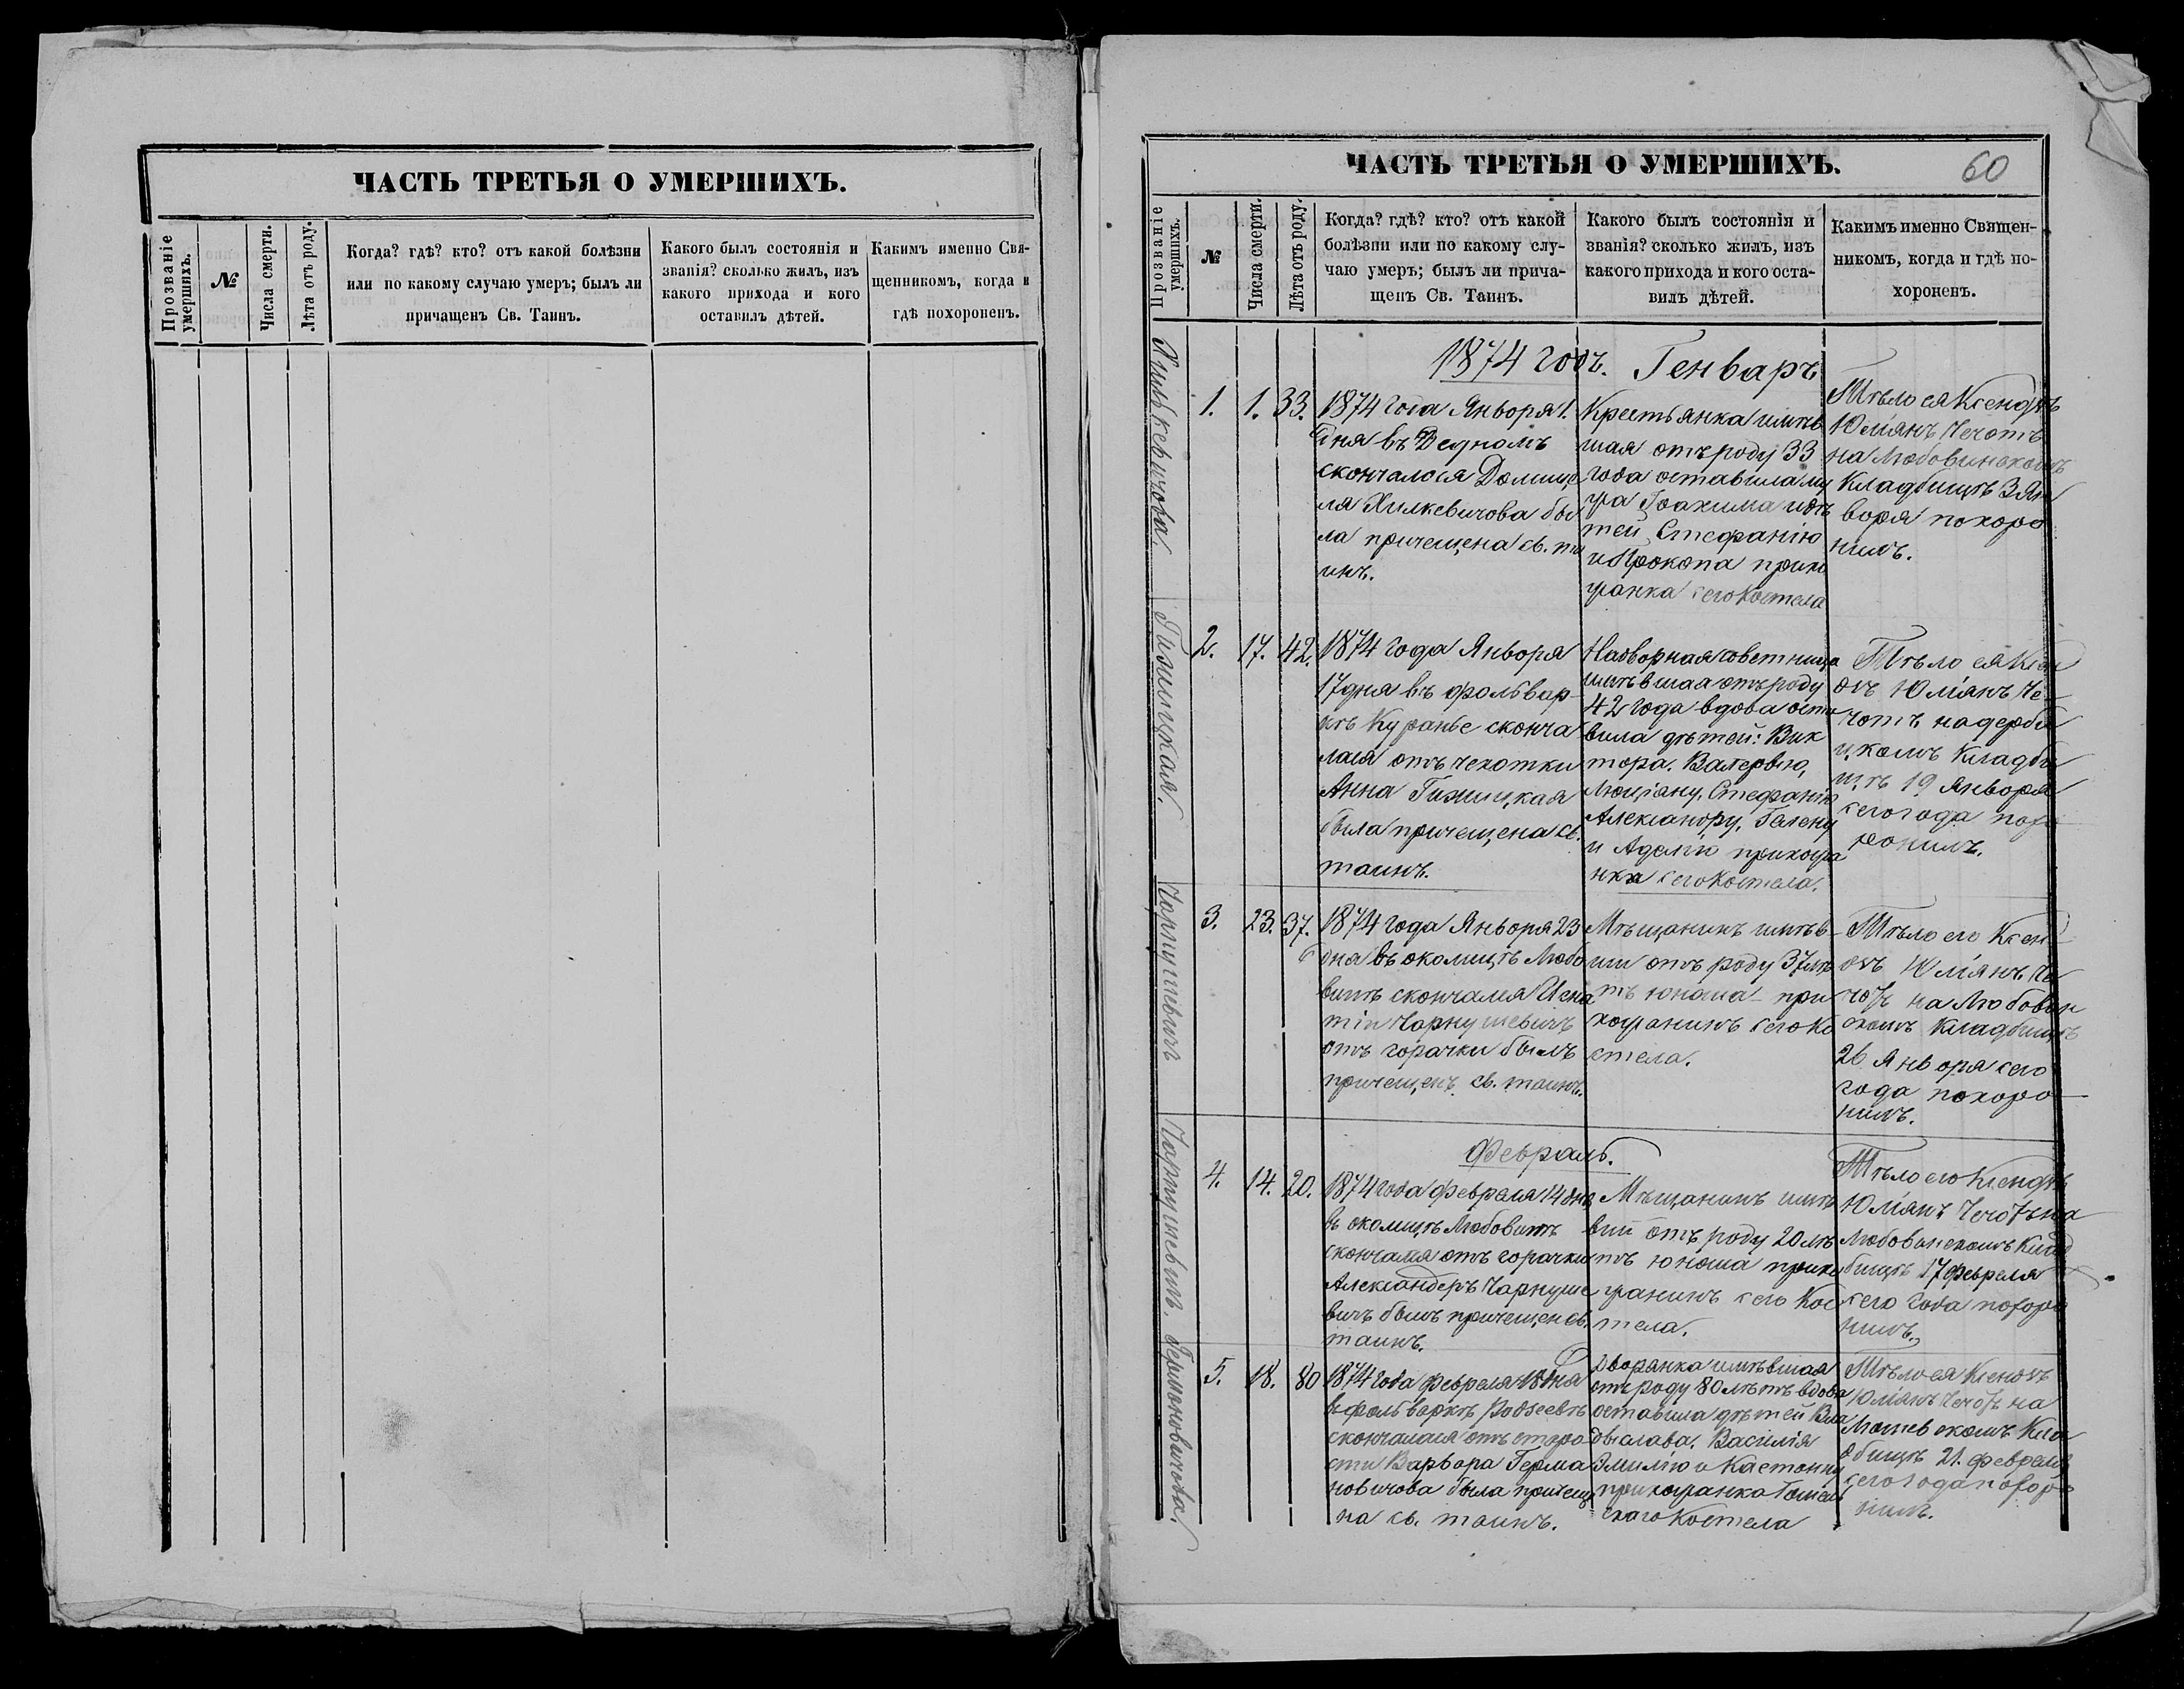 ЧАСТЬ ТРЕТЬЯ О УМЕРШИХЪ.
Прозваніе умершихъ.
№
Числа смерти.
Лѣта отъ роду.
Когда? гдѣ? кто? отъ какой болѣзни
или по какому случаю умеръ; былъ ли
причащенъ Св. Таинъ.
Какого былъ состоянія и
званія? сколько жилъ, изъ
какого прихода и кого
оставилъ дѣтей.
Каким именно Свя-
щенникомъ, когда и
гдѣ похороненъ.
ЧАСТЬ ТРЕТЬЯ О УМЕРШИХЪ.
60
Прозваніе умершихъ.
№
Числа смерти.
Лѣта отъ роду.
Когда? гдѣ? кто? отъ какой
болѣзни или по какому слу-
чаю умеръ; былъ ли прича-
щенъ Св. Таинъ.
Какого былъ состоянія и
званія? сколько жилъ, изъ
какого прихода и кого оста-
вилъ дѣтей.
Какимъ именно Священ-
никомъ, когда и гдѣ по-
хороненъ.
1874 годъ. Генваръ
1. 1. 33.
1874 года Января 1.
дня въ
скончалося
ля Хилкевичова бы
ла причещена св. та
инъ.
Крестьянка имѣв
шая отъ роду 33
года оставила му
жа Іоахима и дѣ
тей Стефанію
и Прокопа прихо
жанка сего Костела
Тѣло ея Ксендзъ
Юліянъ Чечотъ
на Любовинскомъ
Кладбищѣ 3 Ян
воря похоро
нилъ.
Гижицкая.
2. 17. 42.
1874 года Январ
17 дня въ фольвар-
кѣ Куранье сконча
лася отъ чехотки
Анна Гижицкая
была причещена св.
таинъ.
Надворная советница
имѣвшая отъ роду
42 года вдова оста
вила дѣтей: Вик
тора. Валерію,
Люціану, Стефанію
Александру, Гелену
и Аделію прихожа
нка сего Костела.
Тѣло ея Ксен
дзъ Юліянъ Че-
чотъ на
комъ Кладби
щѣ 19 Января
сего года похо
ронилъ.
Чарнушевичъ
3. 23. 37.
1874 года Января 23
дня въ околицѣ Любо
витѣ скончался Игна
тій Чарнушевичъ
отъ горачки былъ
причещенъ св. таинъ.
Мѣщанинъ имѣв-
ши отъ роду 37 лѣ
тъ юноша при
хожанинъ сего Ко
стела.
Тѣло его Ксен-
дзъ Юліянъ Че
чотъ на Любовин
скомъ Кладбищѣ
26 Января сего
года похоро-
нилъ.
Февраль.
Чарнушевичъ.
4. 14. 20.
1874 года февреля 14 дня
въ околицѣ Любовитѣ
скончался отъ горачки
Александеръ Чарнуше
вичъ былъ причещен св.
таинъ.
Мѣщанинъ имѣ
вши отъ роду 20 лѣ
тъ юноша прихо
жанинъ сего Кос
тела.
Тѣло его Ксендзъ
Юліянъ Чечотъ на
Любовинскомъ Клад
бищѣ 17 февреля
сего года похоро
нилъ.
Германовичова.
5. 18. 80
1874 года февреля 18 дня
въ фольваркѣ
скончалася отъ старо
сти Варвора Герма
новичова была причеще
на св. таинъ.
Дворанка имѣвшая
отъ роду 80 лѣтъ вдова
оставила дѣтей Вла
дыслава, Василія
Эмилію и
прихожанка
скаго Костела
Тѣло ея Ксендзъ
Юліянъ Чечотъ на
скомъ Кла
дбищѣ 21. февреля
сего года похоро
нилъ.